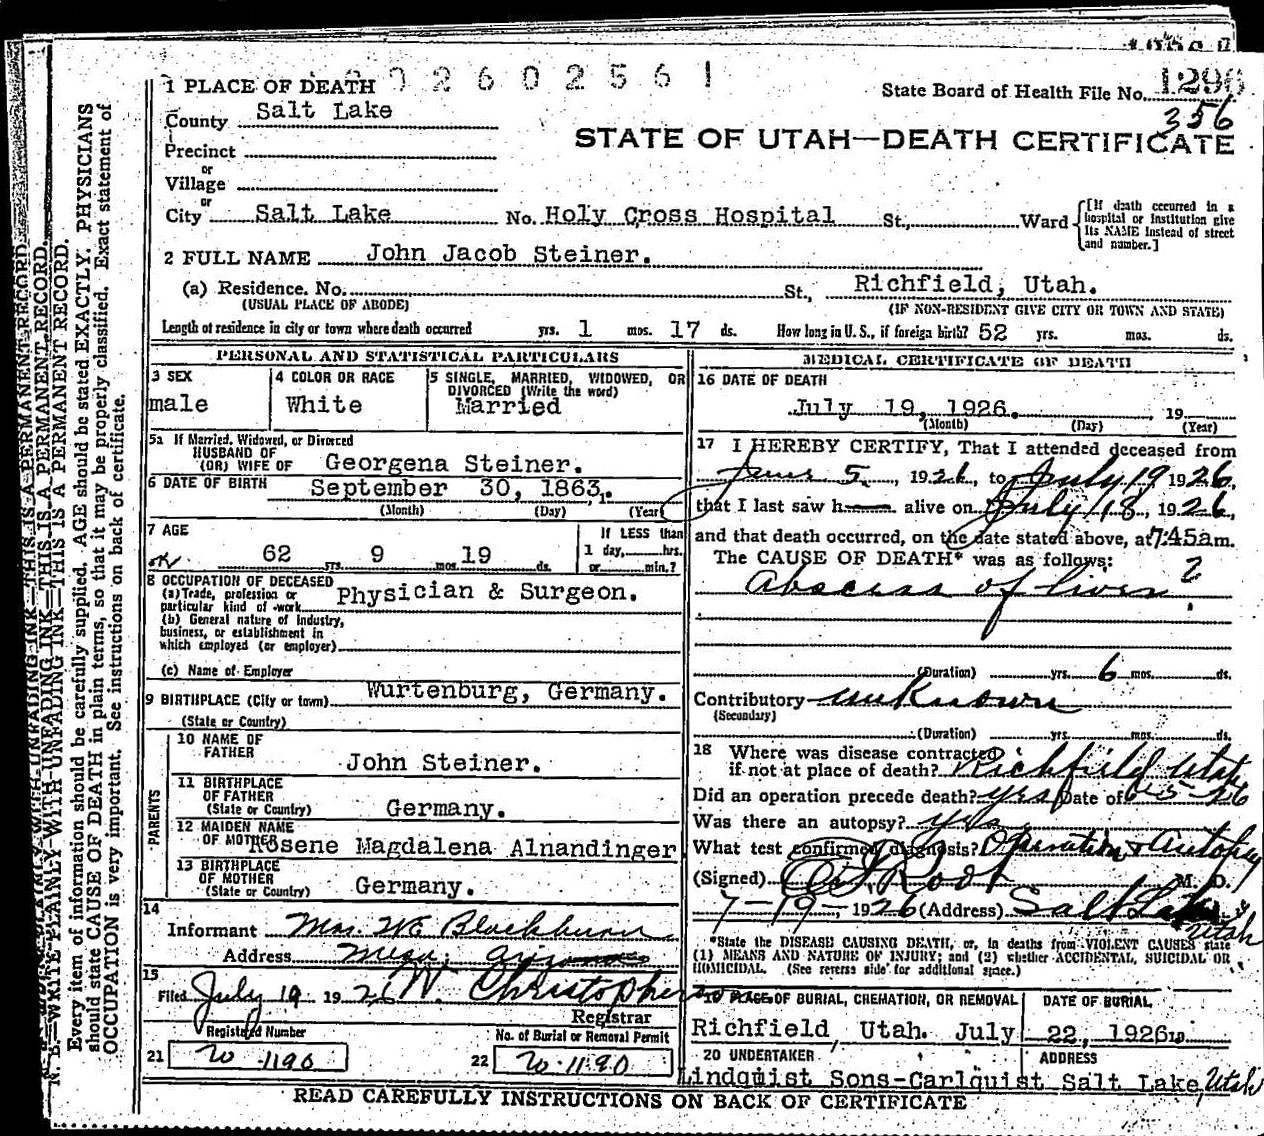 1 PLACE OF DEATH
0 2 6 0 2 5 6 1
State Board of Health File No. 1296
356
County Salt Lake
STATE OF UTAH—DEATH CERTIFICATE
Precinct
or
Village
or
City Salt Lake No. Holy Cross Hospital St., Ward
[If death occurred in a hospital or institution give its NAME instead of street and number.]
2 FULL NAME John Jacob Steiner.
(a) Residence. No. St., Richfield, Utah.
(USUAL PLACE OF ABODE) (IF NON-RESIDENT GIVE CITY OR TOWN AND STATE)
Length of residence in city or town where death occurred yrs. 1 mos. 17 ds. How long in U. S., if foreign birth? 52 yrs. mos. ds.
PERSONAL AND STATISTICAL PARTICULARS
3 SEX
male
4 COLOR OR RACE
White
5 SINGLE, MARRIED, WIDOWED, OR DIVORCED (Write the word)
Married
5a If Married, Widowed, or Divorced
HUSBAND OF
(OR) WIFE OF Georgena Steiner.
6 DATE OF BIRTH September 30, 1863.
(Month) (Day) (Year)
7 AGE
62 yrs. 9 mos. 19 ds.
If LESS than
1 day, hrs.
or min.?
8 OCCUPATION OF DECEASED
(a) Trade, profession or
particular kind of work Physician & Surgeon.
(b) General nature of Industry,
business, or establishment in
which employed (or employer)
(c) Name of Employer
9 BIRTHPLACE (City or town) Wurtenburg, Germany.
(State or Country)
PARENTS
10 NAME OF
FATHER John Steiner.
11 BIRTHPLACE
OF FATHER
(State or Country) Germany.
12 MAIDEN NAME
OF MOTHER Rosene Magdalena Alnandinger
13 BIRTHPLACE
OF MOTHER
(State or Country) Germany.
14
Informant Mrs. W E Blackburn
Address Mesa, Arizona
15
Filed July 19 1926 W. Christopherson
Registrar
Registered Number
No. of Burial or Removal Permit
21 20-1190
22 20-1190
MEDICAL CERTIFICATE OF DEATH
16 DATE OF DEATH
July 19, 1926. 19
(Month) (Day) (Year)
17 I HEREBY CERTIFY, That I attended deceased from
June 5, 1926, to July 19 1926,
that I last saw h alive on July 18, 1926,
and that death occurred, on the date stated above, at 7:45am.
The CAUSE OF DEATH* was as follows:
Abscess of liver ?
(Duration) yrs. 6 mos. ds.
Contributory unknown
(Secondary)
(Duration) yrs. mos. ds.
18 Where was disease contracted
if not at place of death? Richfield Utah
Did an operation precede death? yes Date of 6-5-26
Was there an autopsy? yes
What test confirmed diagnosis? Operation & Autopsy
(Signed) Root M. D.
7-19-, 1926 (Address) Salt Lake Utah
*State the DISEASE CAUSING DEATH, or, in deaths from VIOLENT CAUSES state
(1) MEANS AND NATURE OF INJURY; and (2) whether ACCIDENTAL, SUICIDAL OR
HOMICIDAL. (See reverse side for additional space.)
19 PLACE OF BURIAL, CREMATION, OR REMOVAL
DATE OF BURIAL
Richfield, Utah. July 22, 1926 19
20 UNDERTAKER ADDRESS
Lindquist Sons-Carlquist Salt Lake, Utah
READ CAREFULLY INSTRUCTIONS ON BACK OF CERTIFICATE
N. B.—WRITE PLAINLY WITH UNFADING INK—THIS IS A PERMANENT RECORD.
Every item of information should be carefully supplied. AGE should be stated EXACTLY. PHYSICIANS
should state CAUSE OF DEATH in plain terms, so that it may be properly classified. Exact statement of
OCCUPATION is very important. See instructions on back of certificate.